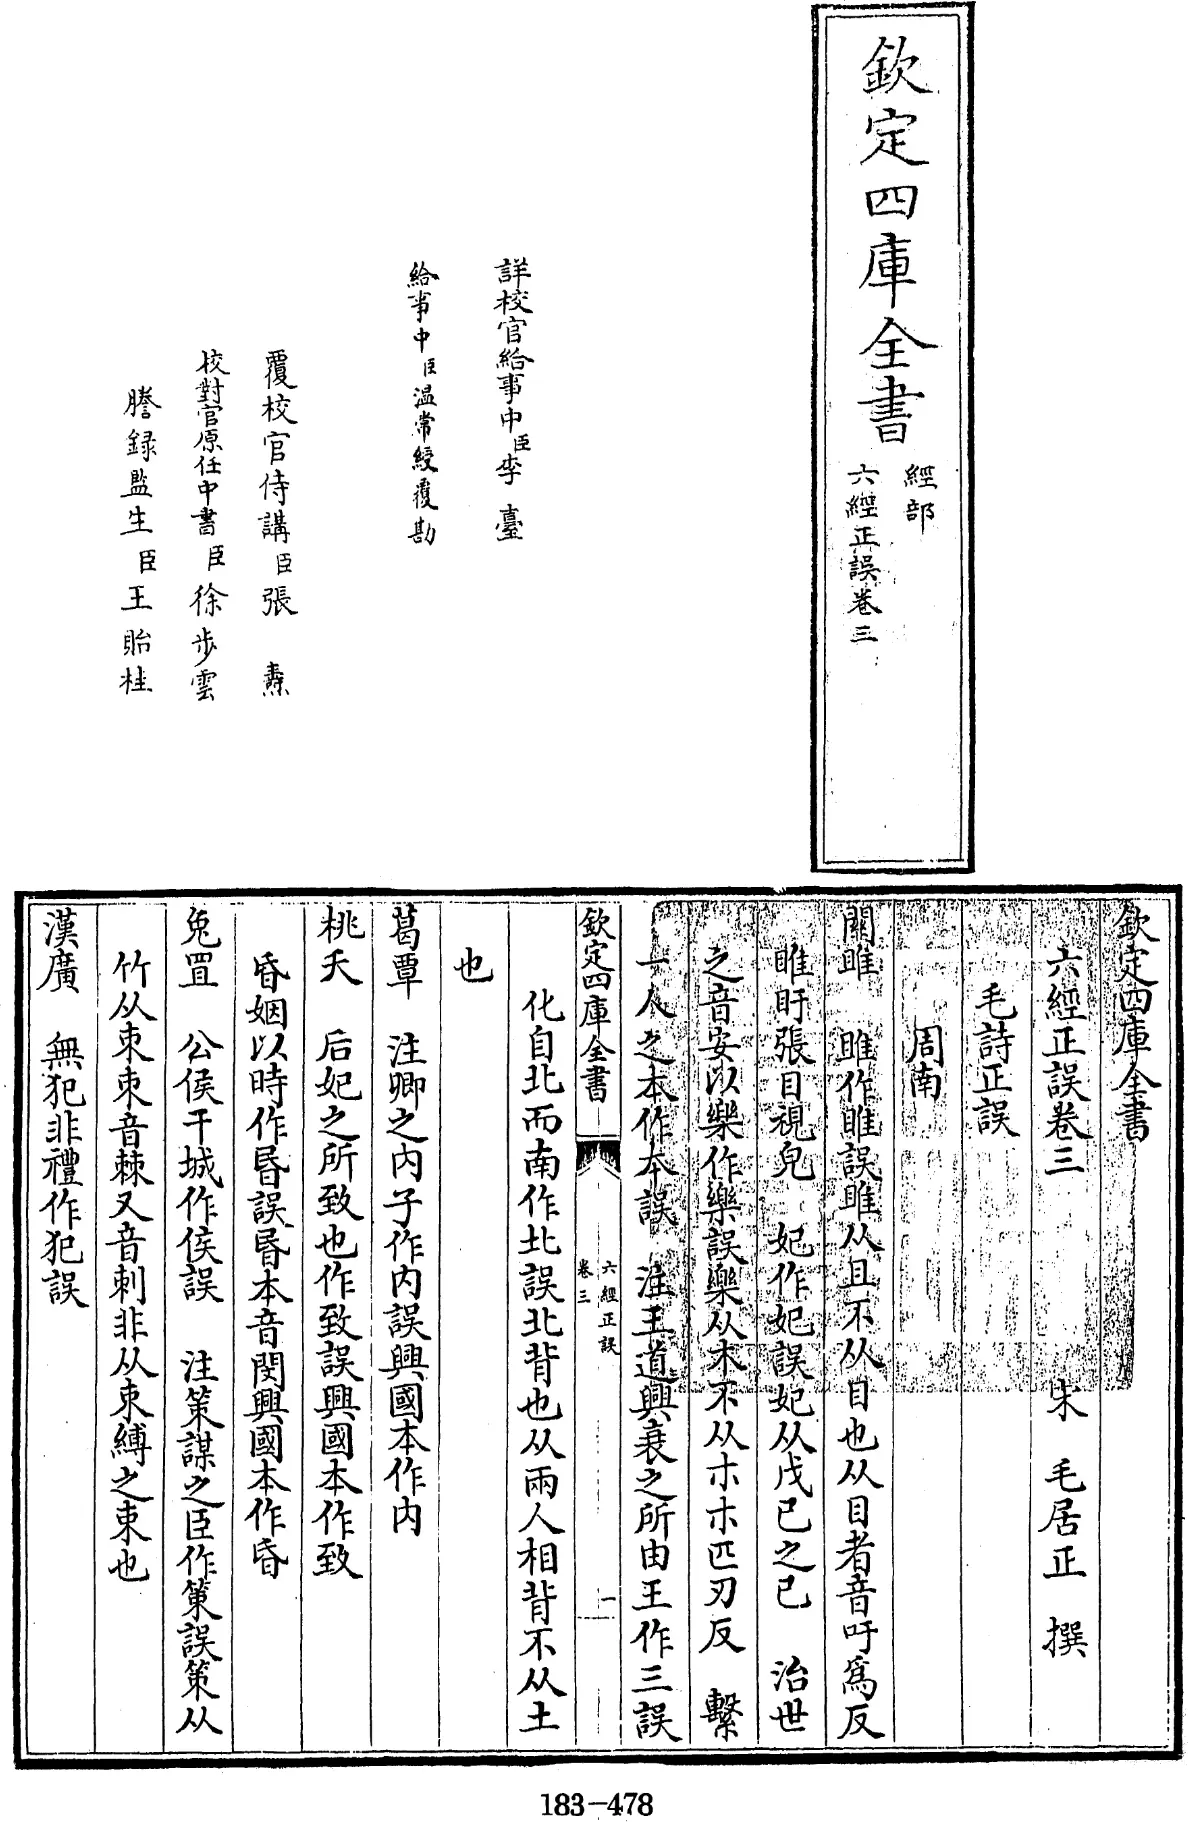 欽定四庫全書
經部
六經正誤卷三
詳校官給事中臣李臺
給事中臣温常綬覆勘
覆校官侍講臣張燾
校對官原任中書臣徐步雲
謄録監生臣王貽桂
欽定四庫全書
六經正誤卷三
宋 毛居正 撰
毛詩正誤
周南
關雎 雎作睢誤雎从且不从目也从目者音吁爲反
睢盱張目視皃 妃作妃誤妃从戊己之己 治世
之音安以樂作樂誤樂从木不从朩朩匹刃反 繫
一人之本作夲誤 注王道興衰之所由王作三誤
化自北而南作北誤北背也从兩人相背不从土
也
葛覃 注卿之内子作内誤興國本作内
桃夭 后妃之所致也作致誤興國本作致
昏姻以時作昬誤昬本音閔興國本作昏
兔罝 公侯干城作侯誤 注策謀之臣作策誤策从
竹从朿朿音棘又音刺非从束縛之束也
漢廣 無犯非禮作犯誤
欽定四庫全書
六經正誤
卷三
一
183-478